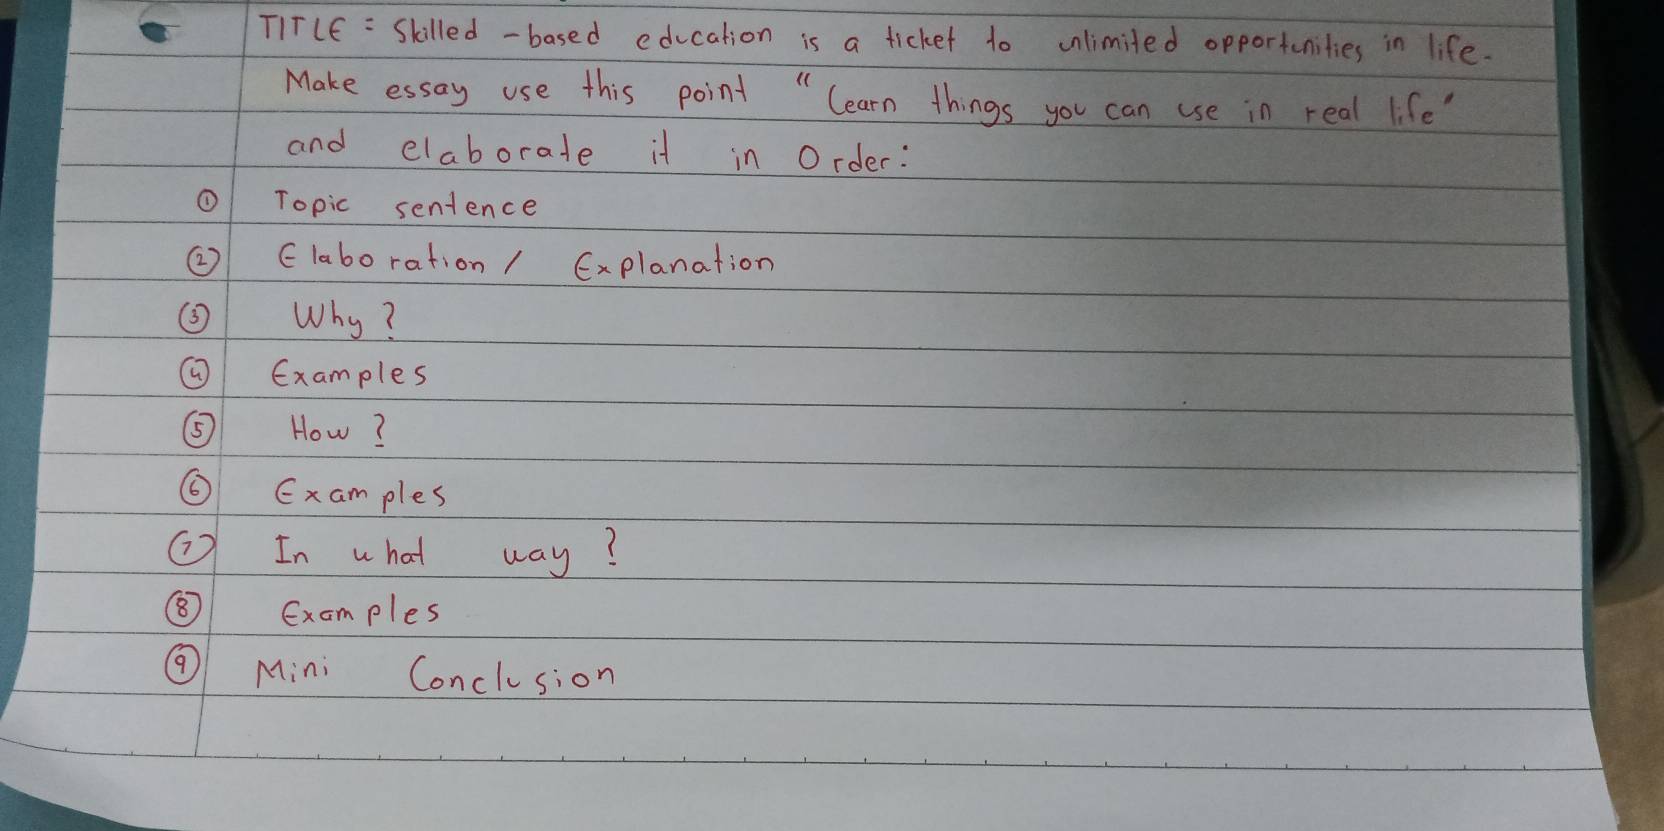 TITLE : Skilled - based education is a ticket to unlimited opportunities in life.
Make essay use this point "Learn things you can use in real life"
and elaborate it in Order:
① Topic sentence
② Elaboration / Explanation
③ Why?
④ Examples
⑤ How?
⑥ Examples
⑦ In what way?
⑧ Examples
⑨ Mini Conclusion